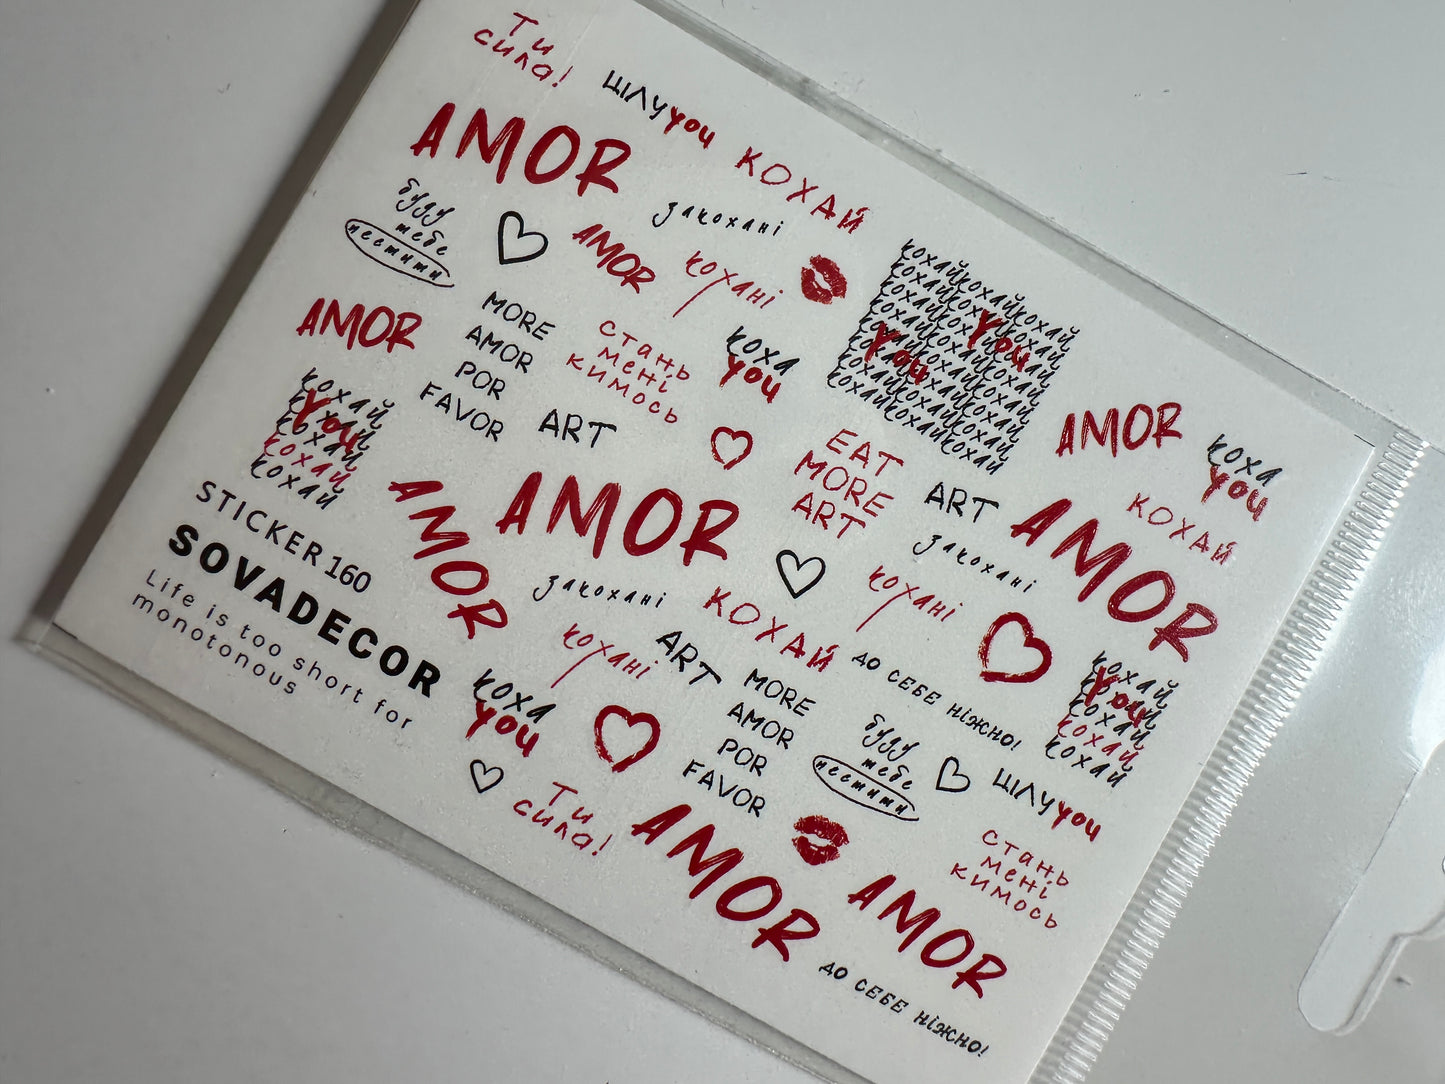 Ти
сила!
ЦІЛУYOU
AMOR
КОХАЙ
закохані
буду
тебе
пестити
AMOR
кохані
AMOR
MORE
AMOR
POR
FAVOR
стань
мені
кимось
коха
you
кохайкохайкохай
кохайкохайкохай
кохайкохайкохай
кохайкохайкохай
кохайкохайкохай
кохайкохайкохай
кохайкохайкохай
кохайкохайкохай
You
You
AMOR
коха
you
кохай
кохай
кохай
кохай
кохай
You
ART
EAT
MORE
ART
ART
КОХАЙ
AMOR
AMOR
AMOR
закохані
кохані
STICKER 160
SOVADECOR
Life is too short for
monotonous
закохані
КОХАЙ
кохані
ART
до СЕБЕ ніжно!
кохай
кохай
кохай
кохай
кохай
You
коха
you
MORE
AMOR
POR
FAVOR
буду
тебе
пестити
ЦІЛУYOU
Ти
сила!
AMOR
стань
мені
кимось
AMOR
до СЕБЕ ніжно!